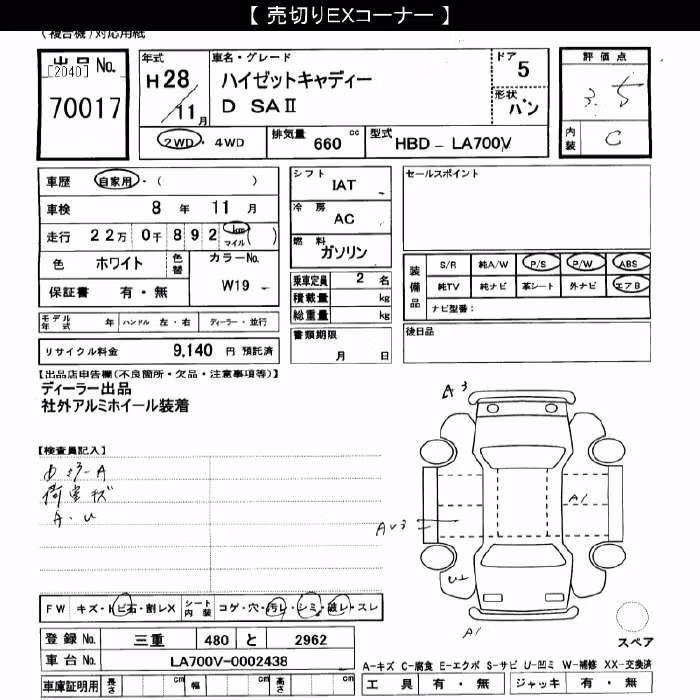 【 売切りEXコーナー 】
(複合機)対応用紙
出品 No.
[2040]
70017
年式
H 28
11 月
車名・グレード
ハイゼットキャディー
D SAⅡ
ドア
5
形状
バン
評価点
3.5
内装
C
2WD ・ 4WD
排気量
660 cc
型式
HBD - LA700V
車歴 自家用・( )
車検 8 年 11 月
走行 22万 0千 892 km マイル ( )
色 ホワイト 色替 カラーNo.
W19
保証書 有・無
シフト
IAT
冷房
AC
燃料
ガソリン
乗車定員 2 名
積載量 kg
総重量 kg
セールスポイント
装備品
S/R 純A/W P/S P/W ABS
純TV 純ナビ 革シート 外ナビ エアB
ナビ型番:
モデル年式 年 ハンドル 左・右 ディーラー・並行
リサイクル料金 9,140 円 預託済
書類期限
月 日
後日品
【出品店申告欄(不良箇所・欠品・注意事項等)】
ディーラー出品
社外アルミホイール装着
【検査員記入】
荷室キズ
A・U
A3
A1
U1
A1
FW キズ・トビ石・割レX シート内装 コゲ・穴・汚レ・シミ・破レ・スレ
登録 No. 三重 480 と 2962
車台 No. LA700V-0002438
車庫証明用 長さ cm 幅 cm 高さ cm
スペア
A-キズ C-腐食 E-エクボ S-サビ U-凹ミ W-補修 XX-交換済
工具 有・無 ジャッキ 有・無